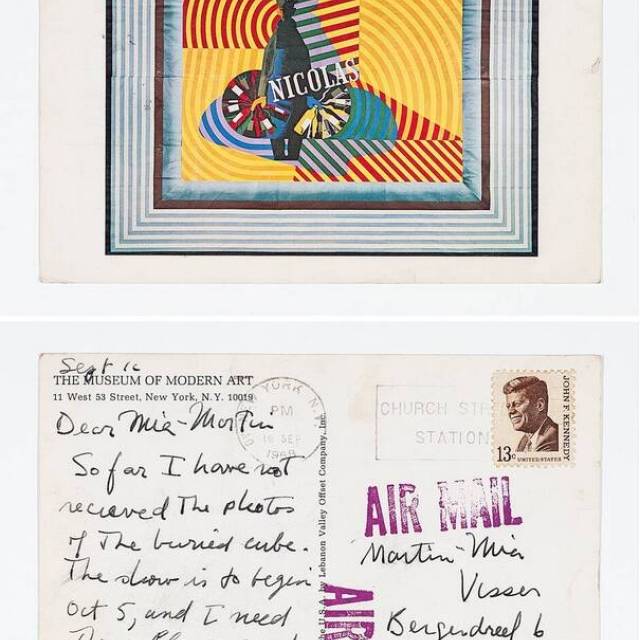 NICOLAS
Sept 16
THE MUSEUM OF MODERN ART
11 West 53 Street, New York, N.Y. 10019
Dear Mia-Martin
So far I have not
recieved the photos
of the buried cube.
The show is to begin
Oct 5, and I need
YORK N.Y.
PM
16 SEP
1968
CHURCH STR
STATION
13c UNITED STATES
JOHN F. KENNEDY
AIR MAIL
Martin-Mia
Visser
Bergerdreef 6
by Lebanon Valley Offset Company, Inc.
AIR